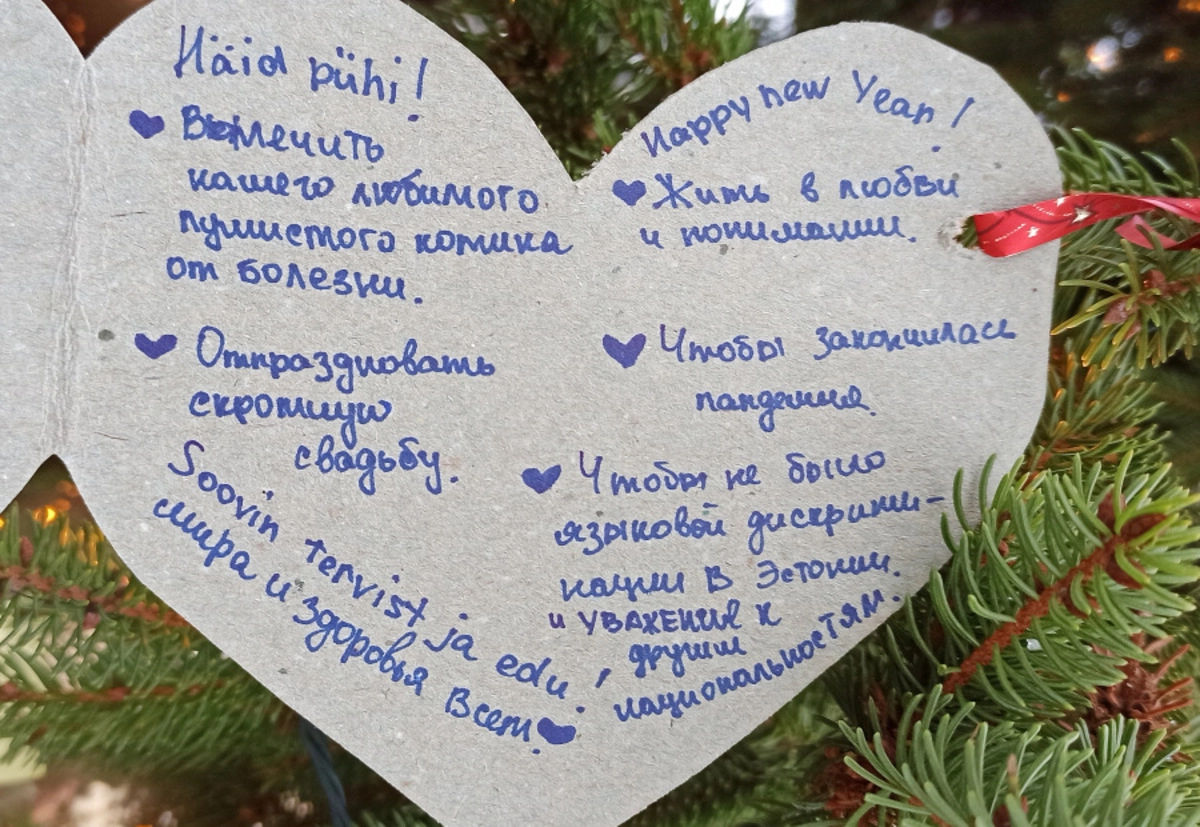 Häid pühi!
♥ Вылечить
нашего любимого
пушистого котика
от болезни.
♥ Отпраздновать
скромную
свадьбу.
Soovin tervist ja edu!
мира и здоровья всем. ♥
Happy new Year!
♥ Жить в любви
и понимании.
♥ Чтобы закончилась
пандемия.
♥ Чтобы не было
языковой дискрими-
нации в Эстонии.
и УВАЖЕНИЯ К
другим
национальностям.